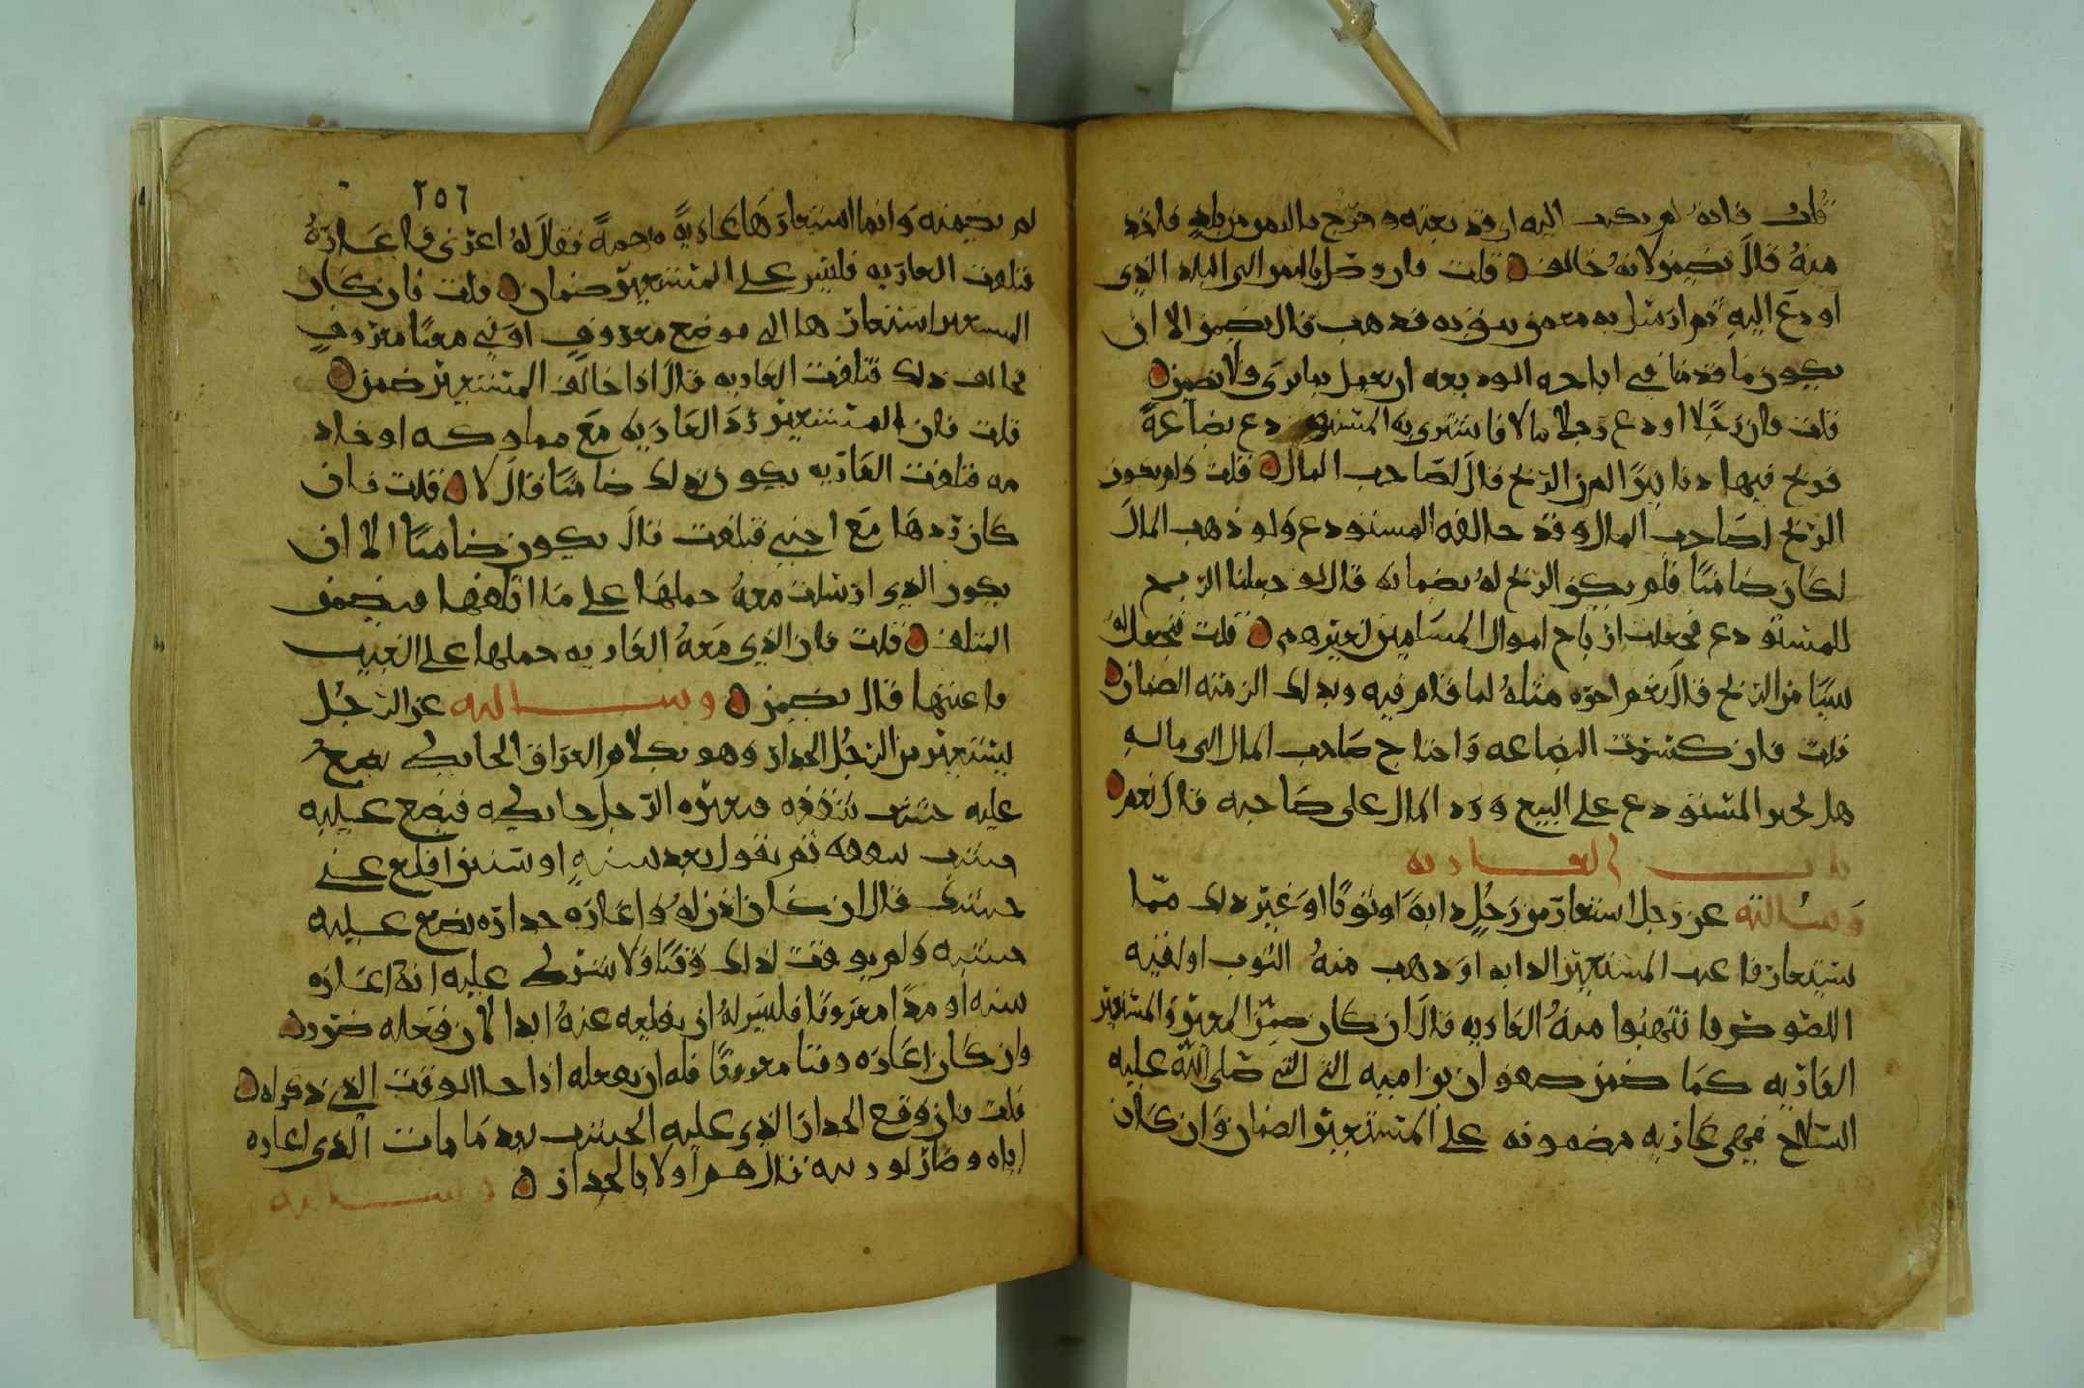 قلت فانه لم يكتب اليه ان قد بعته وخرج بالثمن من بلده فاخذ
منه قال يضمن لانه خالف قلت فان وصل بالثمن الى البلد الذي
اودع اليه ثم ارسل به مع من يثق به فذهب قال يضمن الا ان
يكون ما قدمنا في اباحه الوديعه ان يعمل بما يرى فلا يضمن
قلت فان رجلا اودع رجلا مالا فاشترى به المستودع بضاعة
فربح فيها دنانيرا لمن الربح قال لصاحب المال قلت ولم يكون
الربح لصاحب المال وقد خالفه المستودع ولو ذهب المال
لكان ضامنا فلم يكن الربح له بضمانه قال لو جعلنا الربح
للمستودع لجعلت ارباح اموال المسلمين لغيرهم قلت فتجعل له
شيئا من الربح قال نعم اجره مثله لما قام فيه وبذلك الزمته الضمان
قلت فان كسدت البضاعه واحتاج صاحب المال الى ماله
هل يجبر المستودع على البيع ورد المال على صاحبه قال نعم
باب العاريه
وسالته عن رجل استعار من رجل دابة او ثوبا او غير ذلك مما
يستعار فاعيب المستعير الدابه او ذهب منه الثوب او لقيه
اللصوص فانتهبوا منه العاريه قال ان كان ضمن المعير المستعير
العاريه كما ضمن صفوان بن اميه الى النبي صلى الله عليه
السلاح فهي عاريه مضمونه على المستعير الضمان وان كان
٢٥٦
لم يضمنه وانما استعارها عارية مبهمة فقال له اعرني فاعاره
فتلفت العاريه فليس على المستعير ضمان قلت فان كان
المستعير استعارها الى موضع معروف او في معنا معروف
فخالف ذلك فتلفت العاريه قال اذا خالف المستعير ضمن
قلت فان المستعير رد العاريه مع مملوكه او خاد
مه فتلفت العاريه يكون بذلك ضامنا قال لا قلت فان
كان ردها مع اجنبي فتلفت قال يكون ضامنا الا ان
يكون الذي ارسلت معه حملها على ما اتلفها فيضمن
المتلف قلت فان الذي معه العاريه حملها على العيب
فاعنتها قال يضمن وسالته عن الرجل
يستعير من الرجل الجدار وهو بكلام العراق الحايط يضع
عليه خشب سقفه فيعيره الرجل حايطه فيضع عليه
خشب سقفه ثم يقول بعد سنه او سنتين اقلع عني
خشبك قال ان كان اذن له واعاره جداره يضع عليه
خشبه ولم يوقت لذلك وقتا ولا شرط عليه انه اعاره
سنه او مدا معروفا فليس له ان يقلعه عنه ابدا لان فعله ضرر
وان كان اعاره وقتا معروفا فله ان يفعله اذا جا الوقت الذي ذكر له
قلت فان وقع الجدار الذي عليه الخشب بعد ما مات الذي اعاره
اياه وصار لورثته قال هم اولا بالجدار وسالته